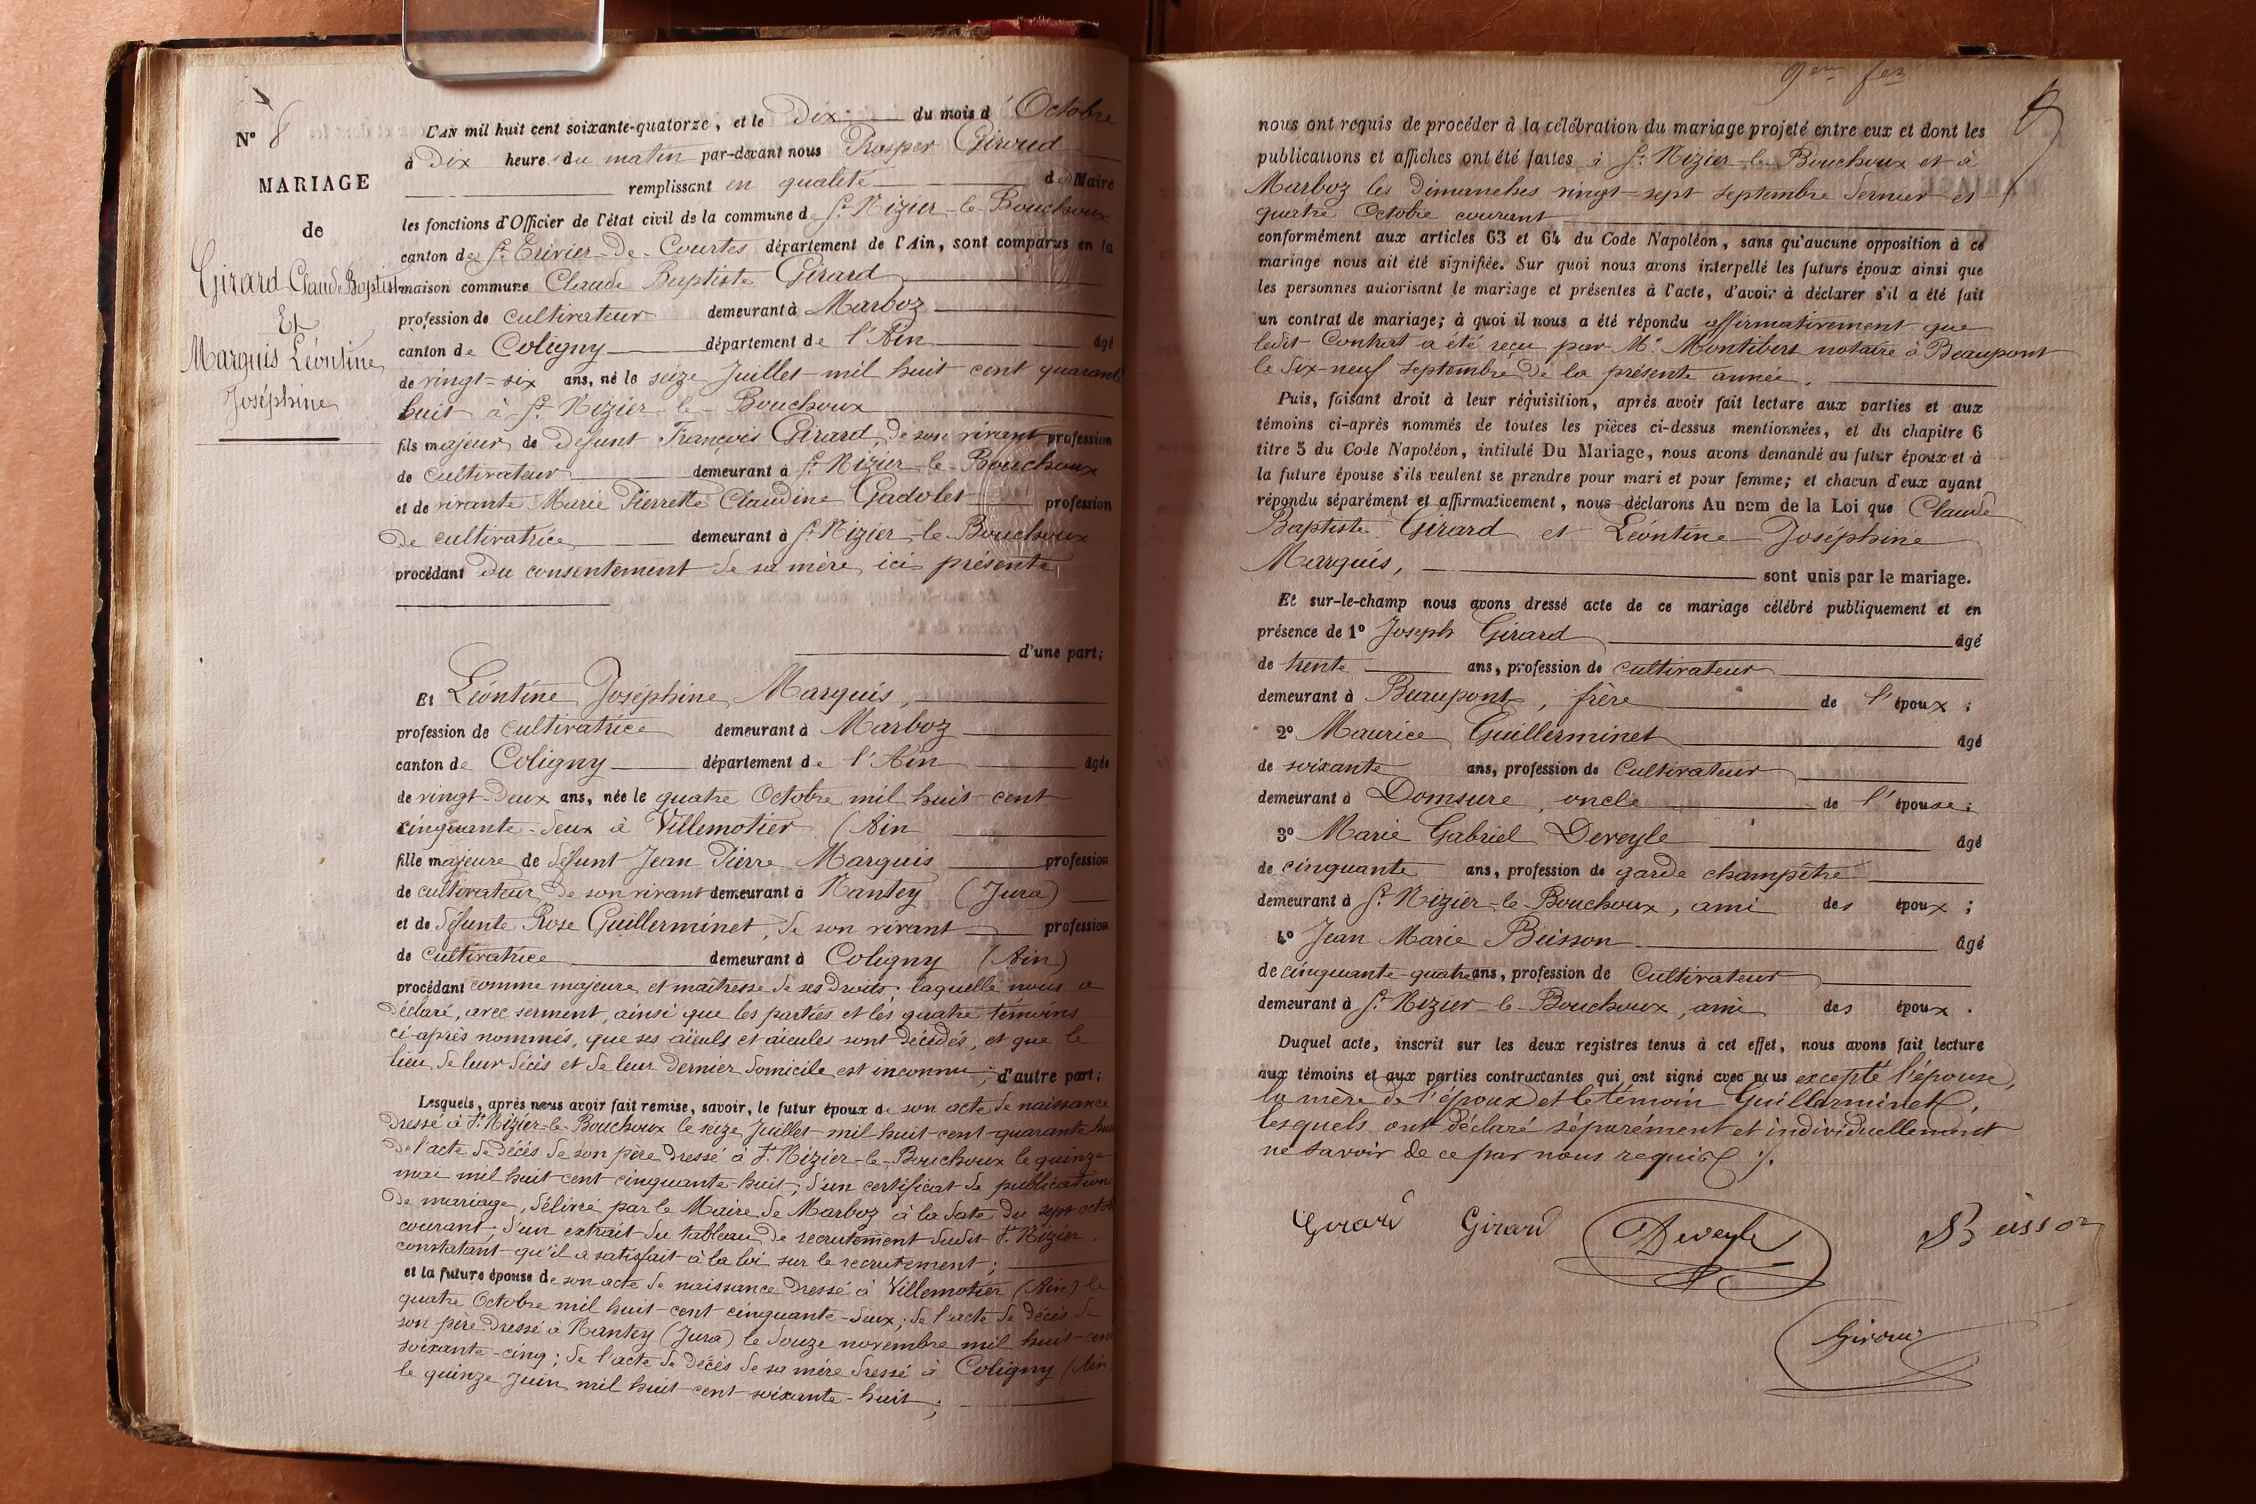 N° 8
MARIAGE
de
Girard Claude Baptiste
Et
Marquis Léontine
Joséphine
L'AN mil huit cent soixante-quatorze, et le Dix du mois d'Octobre
à Dix heures du matin par-devant nous Prosper Giroud
remplissant en qualité de Maire
les fonctions d'Officier de l'état civil de la commune de St Nizier-le-Bouchoux
canton de St Trivier-De-Courtes département de l'Ain, sont comparus en la
maison commune Claude Baptiste Girard
profession de cultivateur demeurant à Marboz
canton de Coligny département de l'Ain âgé
de vingt-six ans, né le seize Juillet mil huit cent quarante
huit à St Nizier-le-Bouchoux
fils majeur de Défunt François Girard, de son vivant profession
de cultivateur demeurant à St Nizier-le-Bouchoux
et de vivante Marie Pierrette Claudine Gadolet profession
De cultivatrice demeurant à St Nizier-le-Bouchoux
procédant du consentement de sa mère, ici présente
d'une part;
Et Léontine Joséphine Marquis,
profession de cultivatrice demeurant à Marboz
canton de Coligny département de l'Ain âgée
de vingt-Deux ans, née le quatre Octobre mil huit cent
cinquante-deux à Villemotier (Ain
fille majeure de défunt Jean Pierre Marquis profession
de cultivateur de son vivant demeurant à Nantey (Jura)
et de défunte Rose Guillerminet, de son vivant profession
de cultivatrice demeurant à Coligny (Ain)
procédant comme majeure et maîtresse de ses Droits; laquelle nous a
déclaré, avec serment, ainsi que les parties et les quatre témoins
ci-après nommés, que ses aïeuls et aïeules sont décédés, et que le
lieu de leur décès et de leur dernier domicile est inconnu; d'autre part;
Lesquels, après nous avoir fait remise, savoir, le futur époux de son acte de naissance
dressé à St Nizier-le-Bouchoux le seize Juillet mil huit-cent-quarante huit
de l'acte de décès de son père dressé à St Nizier-le-Bouchoux le quinze
mai mil huit cent cinquante-huit; d'un certificat de publication
de mariage, délivré par le Maire de Marboz à la date du sept octobre
courant; d'un extrait du tableau de recrutement dudit St Nizier
constatant qu'il a satisfait à la loi sur le recrutement;
et la future épouse de son acte de naissance dressé à Villemotier (Ain) le
quatre Octobre mil huit-cent cinquante-deux; de l'acte de décès de
son père dressé à Nantey (Jura) le douze novembre mil huit-cent
soixante-cinq; de l'acte de décès de sa mère dressé à Coligny (Ain
le quinze Juin mil huit cent soixante-huit;
nous ont requis de procéder à la célébration du mariage projeté entre eux et dont les
publications et affiches ont été faites à St Nizier-le-Bouchoux et à
Marboz les dimanches vingt-sept septembre dernier et
quatre Octobre courant
conformément aux articles 63 et 64 du Code Napoléon, sans qu'aucune opposition à ce
mariage nous ait été signifiée. Sur quoi nous avons interpellé les futurs époux ainsi que
les personnes autorisant le mariage et présentes à l'acte, d'avoir à déclarer s'il a été fait
un contrat de mariage; à quoi il nous a été répondu affirmativement que
ledit Contrat a été reçu par Me Montibert notaire à Beaupont
le Dix-neuf septembre de la présente année.
Puis, faisant droit à leur réquisition, après avoir fait lecture aux parties et aux
témoins ci-après nommés de toutes les pièces ci-dessus mentionnées, et du chapitre 6
titre 5 du Code Napoléon, intitulé Du Mariage, nous avons demandé au futur époux et à
la future épouse s'ils veulent se prendre pour mari et pour femme; et chacun d'eux ayant
répondu séparément et affirmativement, nous déclarons Au nom de la Loi que Claude
Baptiste Girard et Léontine Joséphine
Marquis, sont unis par le mariage.
Et sur-le-champ nous avons dressé acte de ce mariage célébré publiquement et en
présence de 1° Joseph Girard âgé
de trente ans, profession de cultivateur
demeurant à Beaupont, frère de l'époux;
2° Maurice Guillerminet âgé
de soixante ans, profession de Cultivateur
demeurant à Domsure, oncle de l'épouse;
3° Marie Gabriel Deveyle âgé
de cinquante ans, profession de garde champêtre
demeurant à St Nizier-le-Bouchoux, ami des époux;
4° Jean Marie Buisson âgé
de cinquante-quatre ans, profession de Cultivateur
demeurant à St Nizier-le-Bouchoux, ami des époux.
Duquel acte, inscrit sur les deux registres tenus à cet effet, nous avons fait lecture
aux témoins et aux parties contractantes qui ont signé avec nous excepté l'épouse,
la mère de l'époux et le témoin Guillerminet,
lesquels ont déclaré séparément et individuellement
ne savoir de ce par nous requis /.
Girard Girard Deveyle Buisson
Giroud